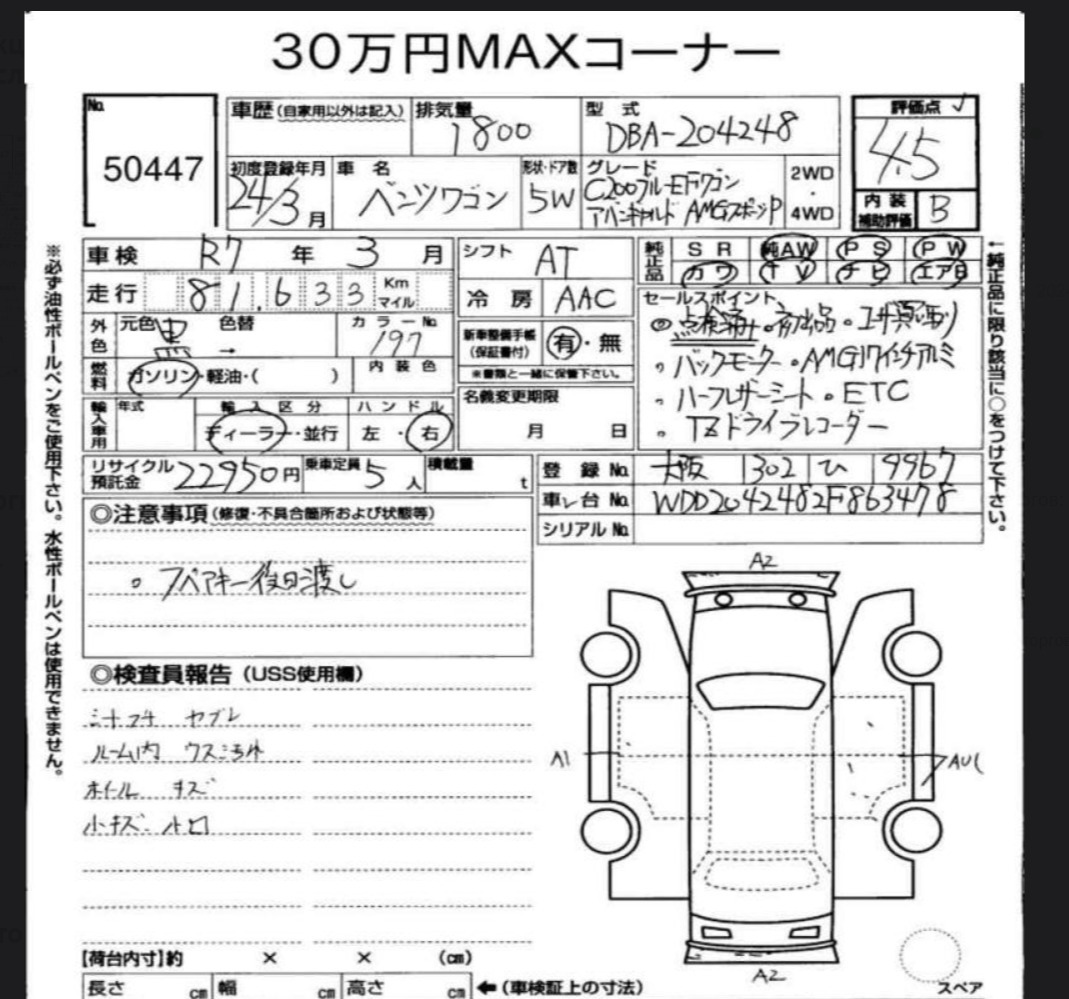 30万円MAXコーナー
No.
50447
車歴(自家用以外は記入)
排気量
1800
型式
DBA-204248
評価点
4.5
初度登録年月
24/3月
車名
ベンツワゴン
形状・ドア数
5W
グレード
C200ブルーEFワゴン
アバンギャルド AMGスポーツP
2WD
・
4WD
内装
補助評価
B
車検 R7年 3月
走行 81,633 Km マイル
外色
元色 黒
色替
→
カラーNo.
197
燃料
ガソリン・軽油・( )
内装色
輸入車用
年式
輸入区分
ディーラー・並行
ハンドル
左・右
シフト AT
冷房 AAC
新車整備手帳
(保証書付)
有・無
※書類と一緒に保管下さい。
名義変更期限
月 日
純正品
SR 純AW PS PW
カワ TV ナビ エアB
セールスポイント
◎点検済
・バックモニター・AMG17インチアルミ
・ハーフレザーシート・ETC
・TZドライブレコーダー
リサイクル預託金 22950円
乗車定員 5人
積載量 t
登録No. 大阪 302 ひ 9967
車台No. WDD2042482F863478
シリアルNo.
◎注意事項(修復・不具合箇所および状態等)
・スペアキー後日渡し
◎検査員報告(USS使用欄)
ルーム内 ウスヨゴレ
ホイール キズ
小キズ・小凹
A2
A1
A2
スペア
【荷台内寸】約 × × (cm)
長さ cm 幅 cm 高さ cm ←(車検証上の寸法)
※必ず油性ボールペンをご使用下さい。水性ボールペンは使用できません。
←純正品に限り該当に○をつけて下さい。